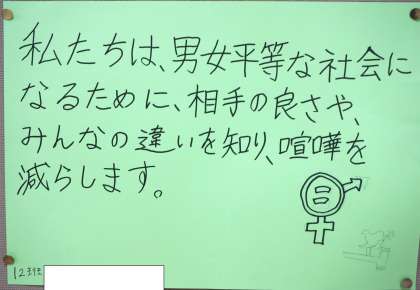 私たちは、男女平等な社会に
なるために、相手の良さや、
みんなの違いを知り、喧嘩を
減らします。